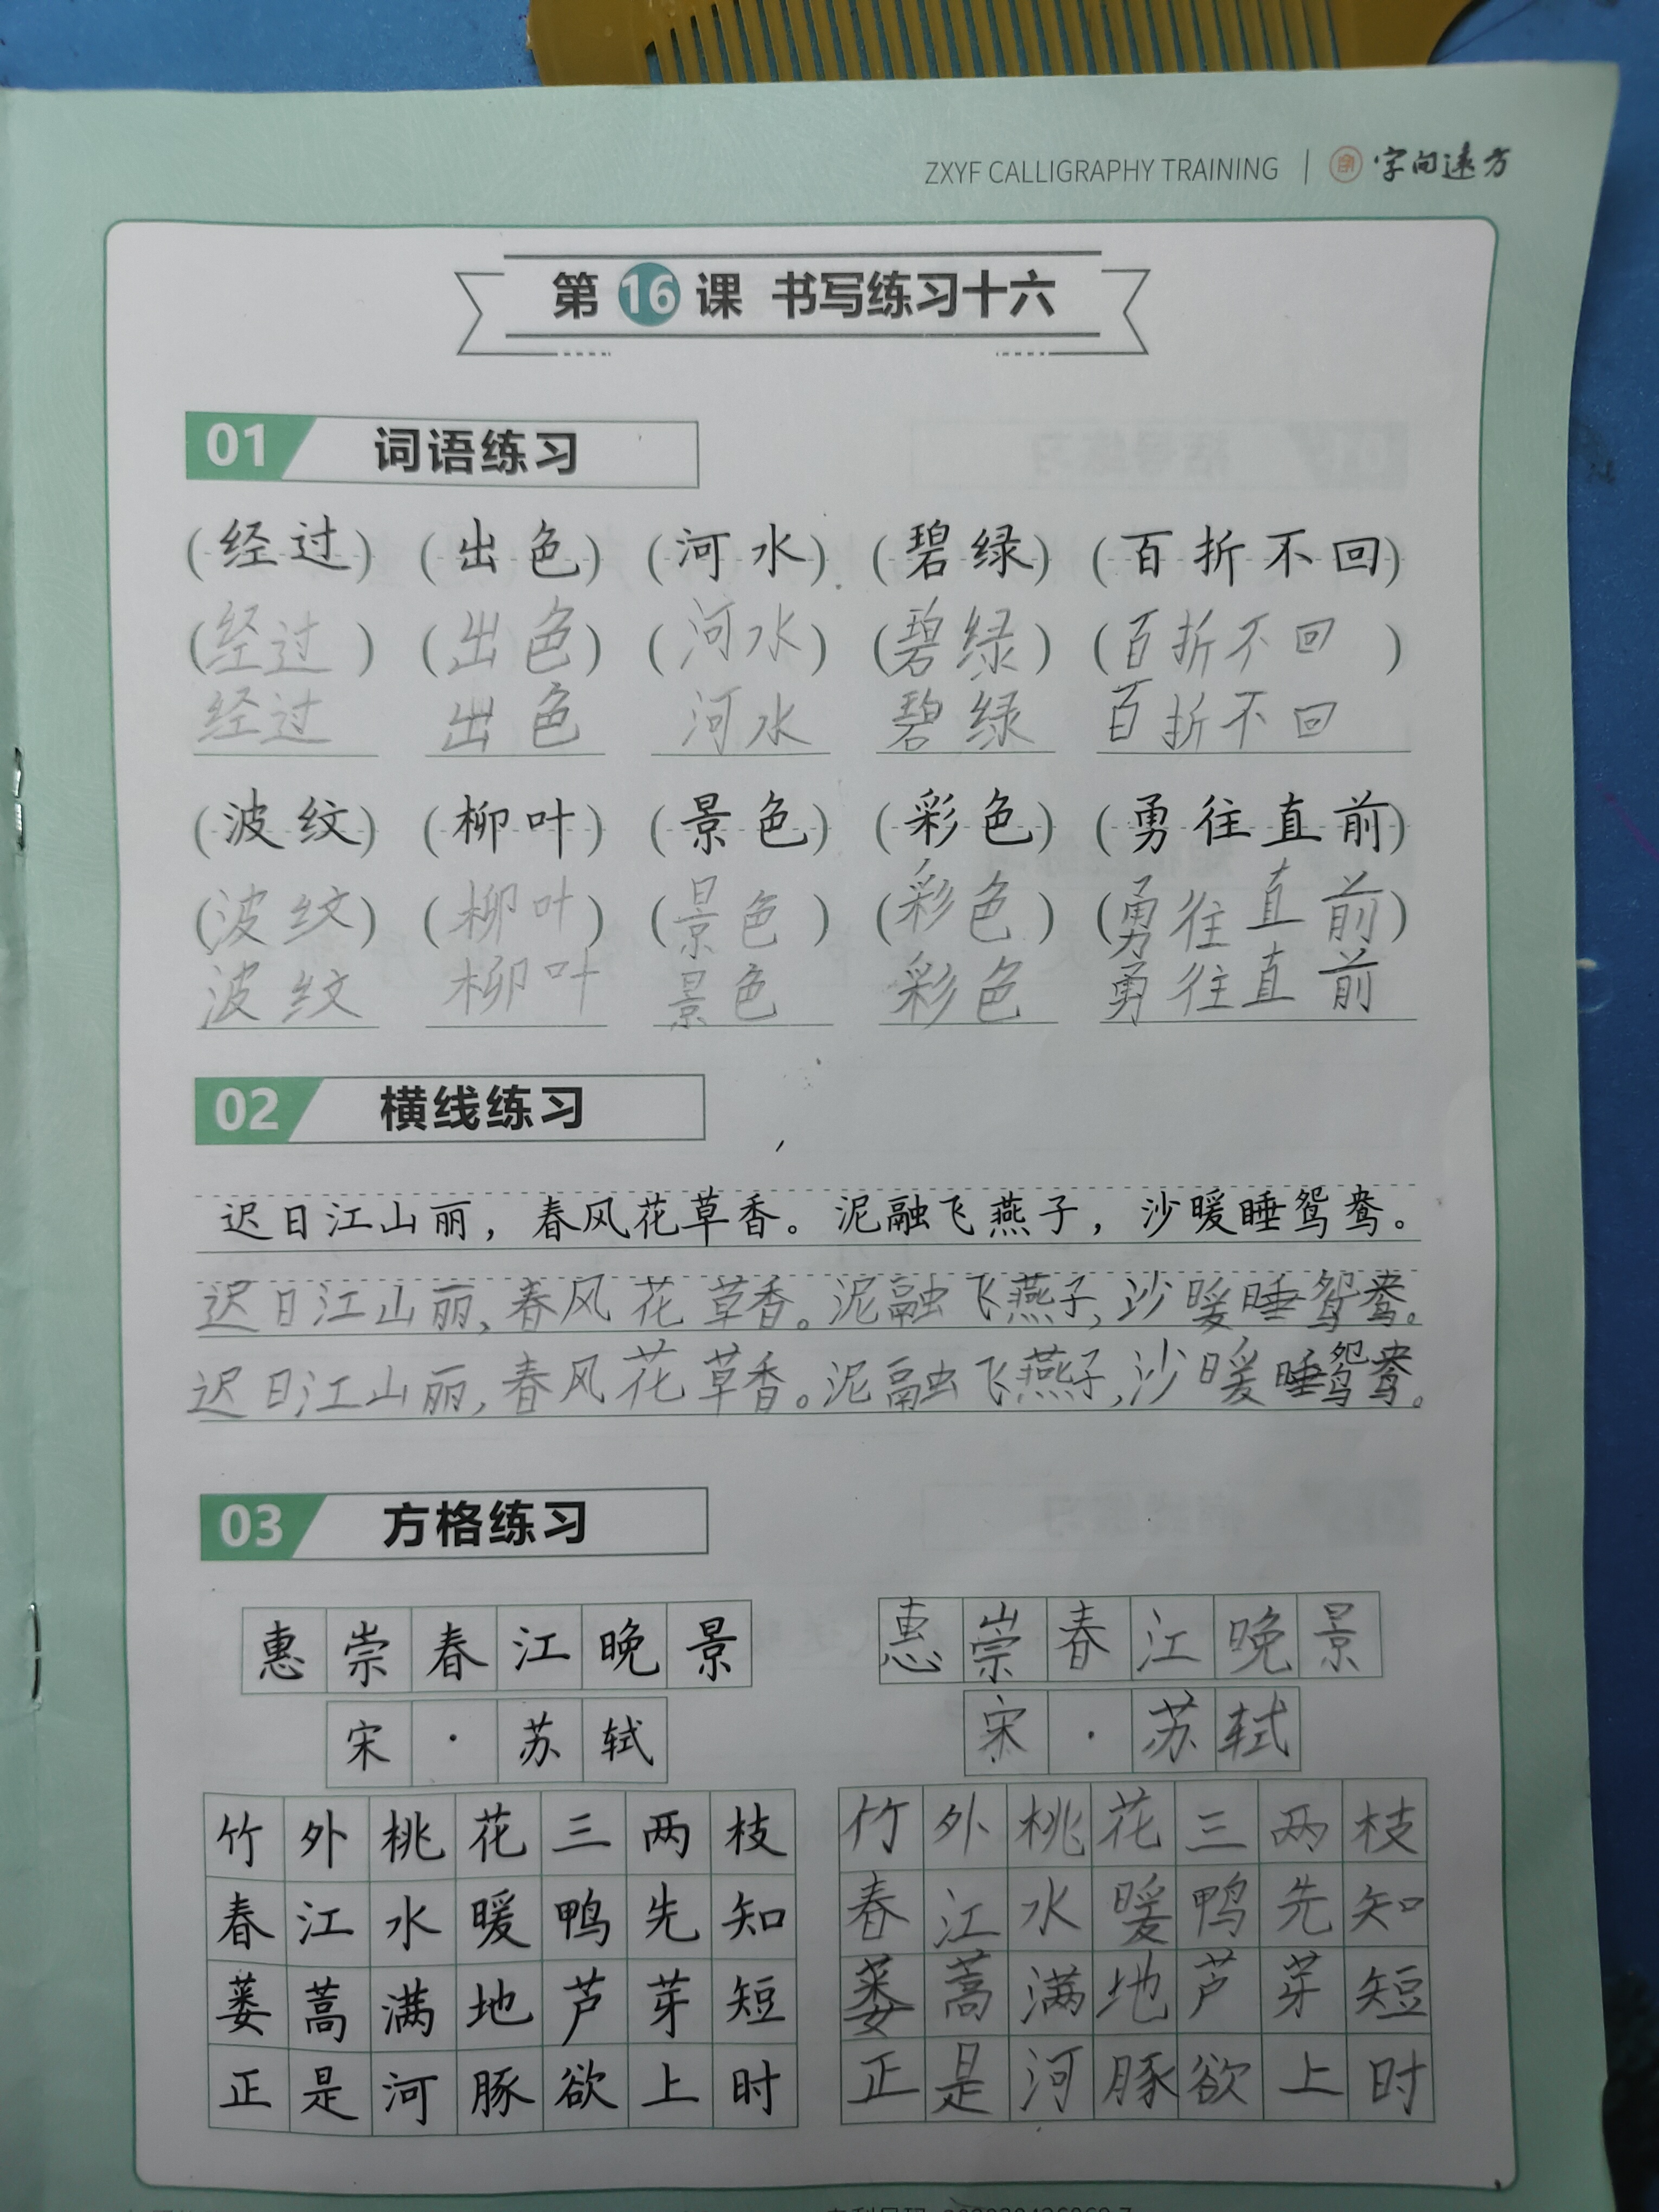 ZXYF CALLIGRAPHY TRAINING | 字向远方
第 16 课 书写练习十六
01 词语练习
(经过) (出色) (河水) (碧绿) (百折不回)
(经过) (出色) (河水) (碧绿) (百折不回)
经过 出色 河水 碧绿 百折不回
(波纹) (柳叶) (景色) (彩色) (勇往直前)
(波纹) (柳叶) (景色) (彩色) (勇往直前)
波纹 柳叶 景色 彩色 勇往直前
02 横线练习
迟日江山丽，春风花草香。泥融飞燕子，沙暖睡鸳鸯。
迟日江山丽，春风花草香。泥融飞燕子，沙暖睡鸳鸯。
迟日江山丽，春风花草香。泥融飞燕子，沙暖睡鸳鸯。
03 方格练习
惠崇春江晚景 惠崇春江晚景
宋·苏轼 宋·苏轼
竹外桃花三两枝 竹外桃花三两枝
春江水暖鸭先知 春江水暖鸭先知
蒌蒿满地芦芽短 蒌蒿满地芦芽短
正是河豚欲上时 正是河豚欲上时